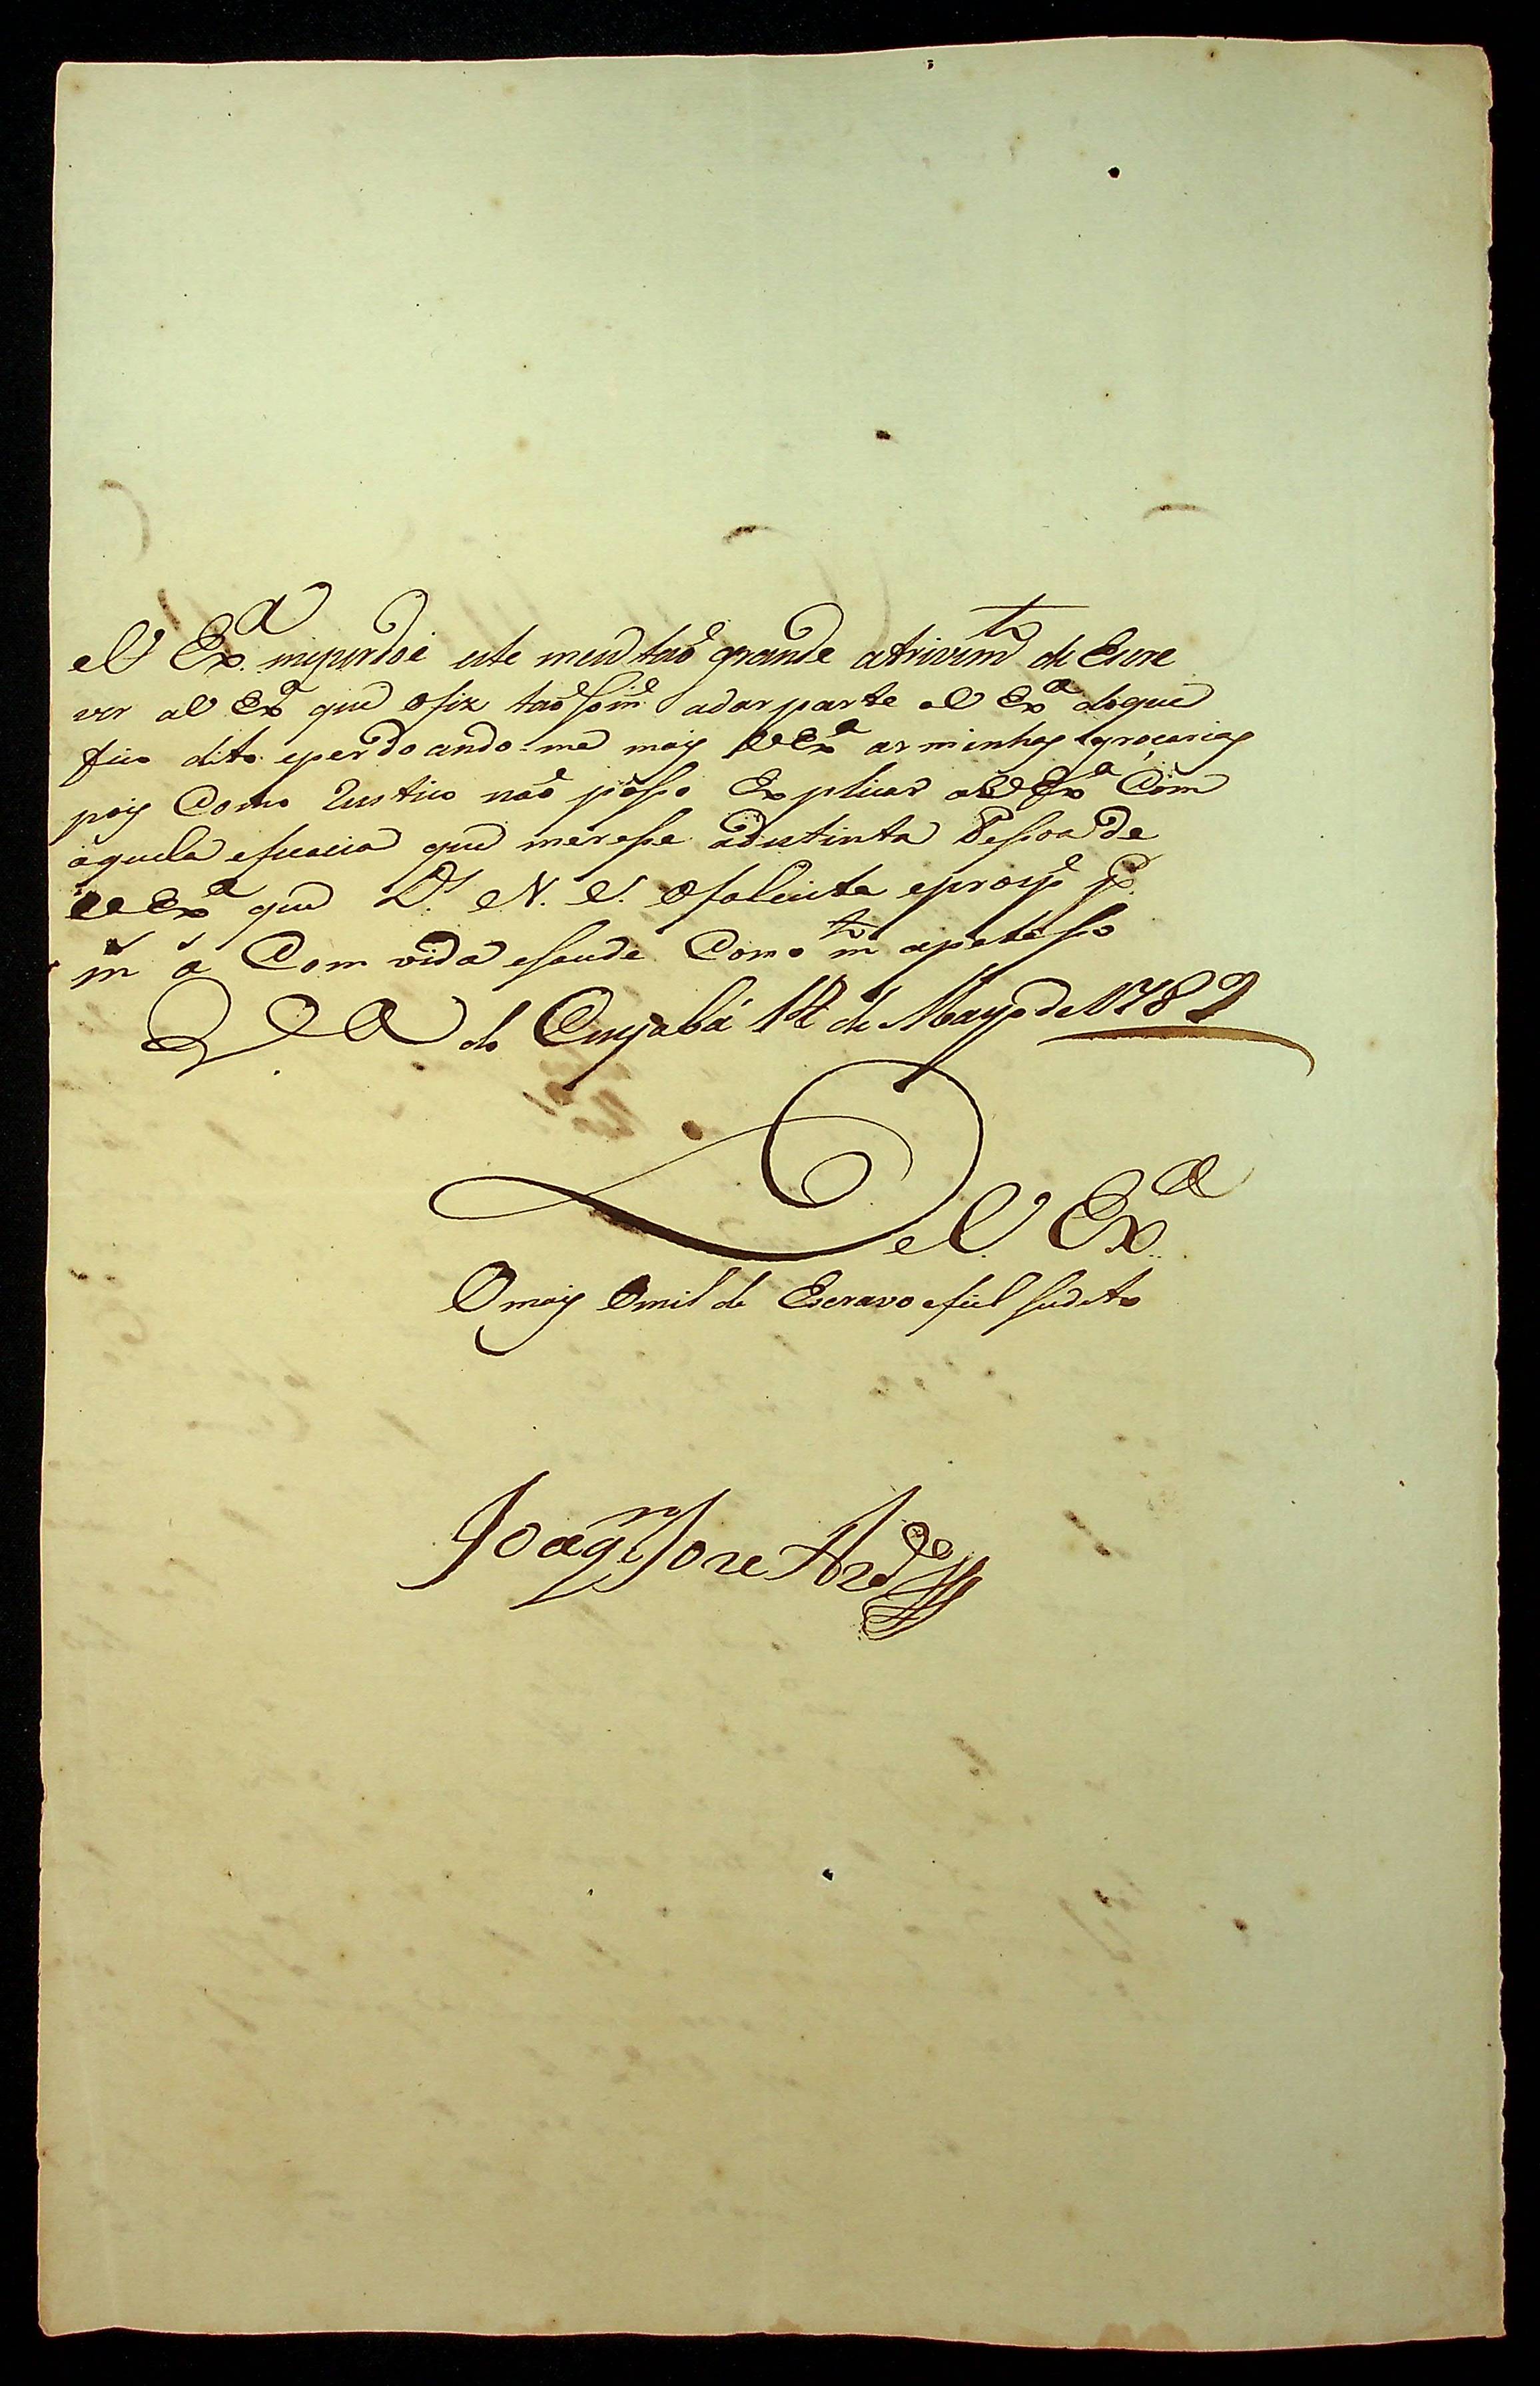 V Ex.ª miperdoe este meu taõ grande atrivim.to de Escre
ver aV Exª que ofiz taõ som.e adar parte aV Exª doque
fico dito eperdoando-me mais VExª as minhas groçarias
pois Como Rustico naõ posso Explicar aVExª Com
aquela eficacia que merese adistinta Pessoa de
VExª que D.s N. S. ofelicita eprosp.e p.r
m.s a.s Com vida esaude Como m.to apeteso
V.ª do Cuyabá 12 de Mayo de 1782
De V. Ex.ª
O mais Omilde Escravo efiel Sudito
Joaq.m Jose